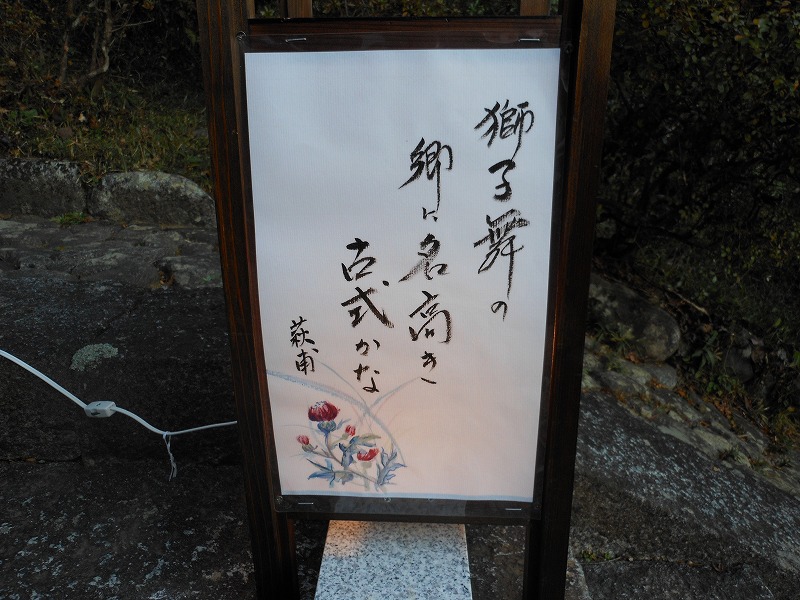 獅子舞の
郷に名高き
古式かな
萩甫